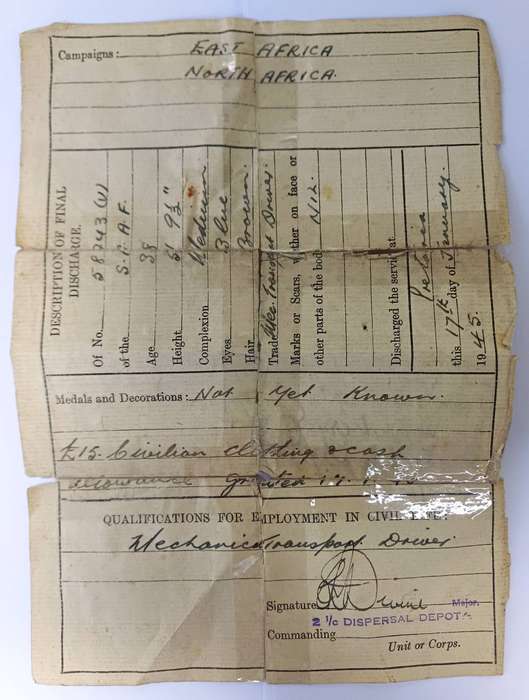 Campaigns: EAST AFRICA
NORTH AFRICA.
DESCRIPTION OF FINAL
DISCHARGE.
Of No. 58243 (V)
of the S.A.A.F.
Age 38
Height 5' 9½"
Complexion Medium
Eyes Blue
Hair Brown
Trade Mec. Transport Driver.
Marks or Scars, whether on face or
other parts of the body Nil.
Discharged the service at
Pretoria
this 17th day of January.
1945.
Medals and Decorations: Not Yet Known.
£15 Civilian clothing & cash
allowance granted 17. 1. 45
QUALIFICATIONS FOR EMPLOYMENT IN CIVIL LIFE:
Mechanical Transport Driver.
Signature Major.
2 I/c DISPERSAL DEPOT
Commanding
Unit or Corps.